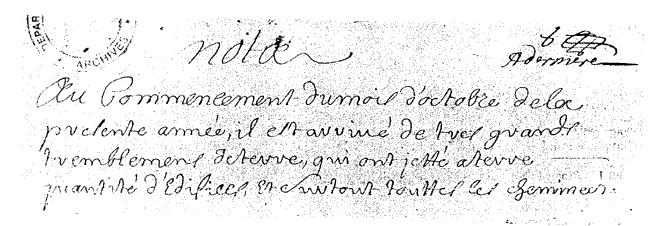 DEPAR
ARCHIVES
nota
6
Aderniére
Au Commencement dumois d'octobre dela
presente année, il est arrivé de tres grands
tremblemens deterre, qui ont jetté aterre
quantité d'Edifices, Et surtout touttes les cheminées.